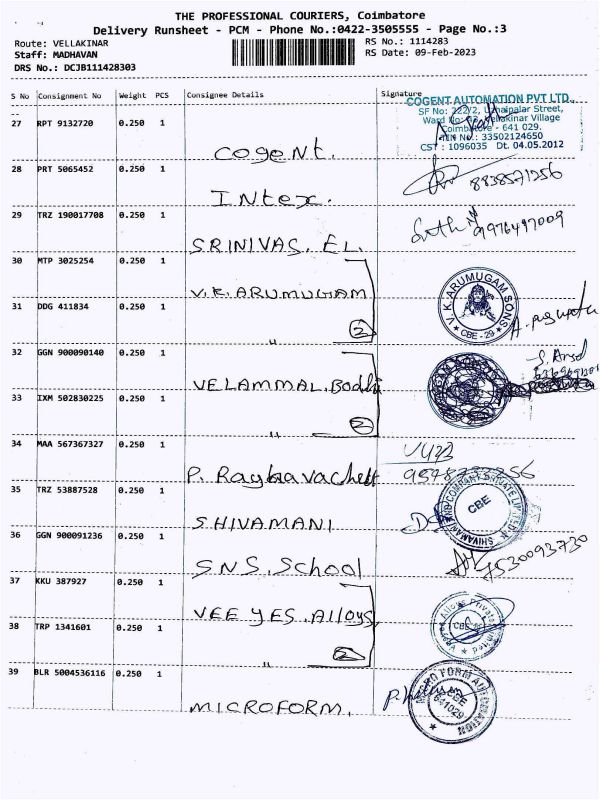 THE PROFESSIONAL COURIERS, Coimbatore
Delivery Runsheet - PCM - Phone No.:0422-3505555 - Page No.:3
Route: VELLAKINAR
RS No.: 1114283
Staff: MADHAVAN
RS Date: 09-Feb-2023
DRS No.: DCJB111428303
S No Consignment No Weight PCS Consignee Details Signature
COGENT AUTOMATION PVT LTD.,
SF No: 222/2, Street,
Ward Vellakinar Village
Coimbatore - 641 029.
No.: 33502124650
CST : 1096035 Dt. 04.05.2012
27 RPT 9132720 0.250 1
Cogent.
28 PRT 5065452 0.250 1
8838571256
Intex.
29 TRZ 190017708 0.250 1
9976497009
SRINIVAS. EL.
30 MTP 3025254 0.250 1
V.K. ARUMUGAM
V.K. ARUMUGAM SONS
CBE - 29
31 DDG 411834 0.250 1
" 2
32 GGN 900090140 0.250 1
VELAMMAL. Bodhi
33 IXM 502830225 0.250 1
" 2
34 MAA 567367327 0.250 1
P. Raghavachett
35 TRZ 53887528 0.250 1
CBE
SHIVAMANI
36 GGN 900091236 0.250 1
7530093730
SNS. School
37 KKU 387927 0.250 1
VEE YES. Alloys,
38 TRP 1341601 0.250 1
" 2
39 BLR 5004536116 0.250 1
MICRO FORM AUTOMATION
CBE
641029
MICROFORM.